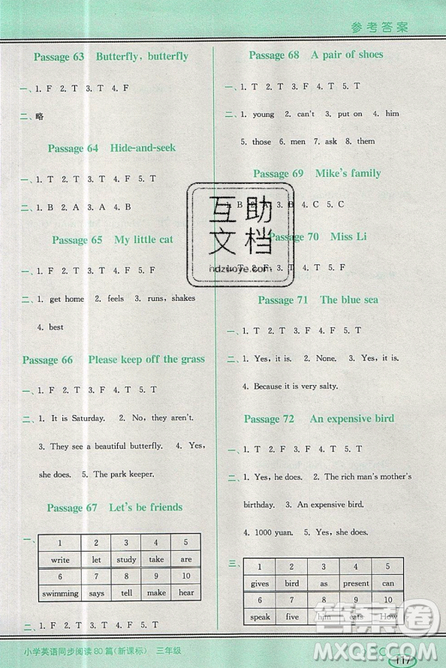 参考答案
Passage 63 Butterfly, butterfly
一、1. F 2. T 3. T 4. F
二、略
Passage 64 Hide-and-seek
一、1. T 2. T 3. T 4. F 5. T
二、1. B 2. A 3. A 4. B 5. A
Passage 65 My little cat
一、1. T 2. T 3. T 4. F 5. T
二、1. get home 2. feels 3. runs, shakes
4. best
Passage 66 Please keep off the grass
一、1. T 2. F 3. F 4. T 5. T
二、1. It is Saturday. 2. No, they aren't.
3. They see a beautiful butterfly. 4. Yes,
she does. 5. The park keeper.
Passage 67 Let's be friends
一、
1 2 3 4 5
write let study take are
6 7 8 9 10
swimming says tell make here
小学英语同步阅读80篇(新课标) 三年级
Passage 68 A pair of shoes
一、1. T 2. T 3. F 4. F 5. T
二、1. young 2. can't 3. put on 4. him
5. those 6. men 7. ask 8. them
Passage 69 Mike's family
1. B 3. B 4. C 5. C
Passage 70 Miss Li
1. T 2. F 3. T 4. T 5. F
Passage 71 The blue sea
一、1. T 2. F 3. F 4. F 5. T
二、1. Yes, it is. 2. None. 3. Yes, it is.
4. Because it is very salty.
Passage 72 An expensive bird
一、1. T 2. F 3. T 4. F 5. T
二、1. Yes, he does. 2. The rich man's mother's
birthday. 3. An expensive bird.
4. 1000 yuan. 5. Yes, she does.
三、
1 2 3 4 5
gives bird as present can
6 7 8 9
sings
117
互助
文档
hdzuoye.com
答案圈